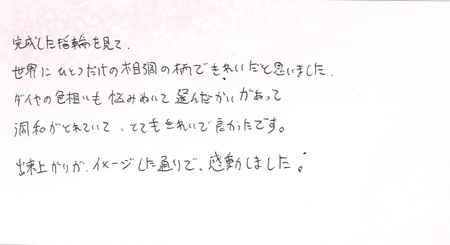 完成した指輪を見て、
世界にひとつだけの木目調の柄できれいだと思いました。
ダイヤの色相いも悩みぬいて選んだかいがあって
調和がとれていて、とてもきれいで良かったです。
出来上がりが、イメージした通りで、感動しました!